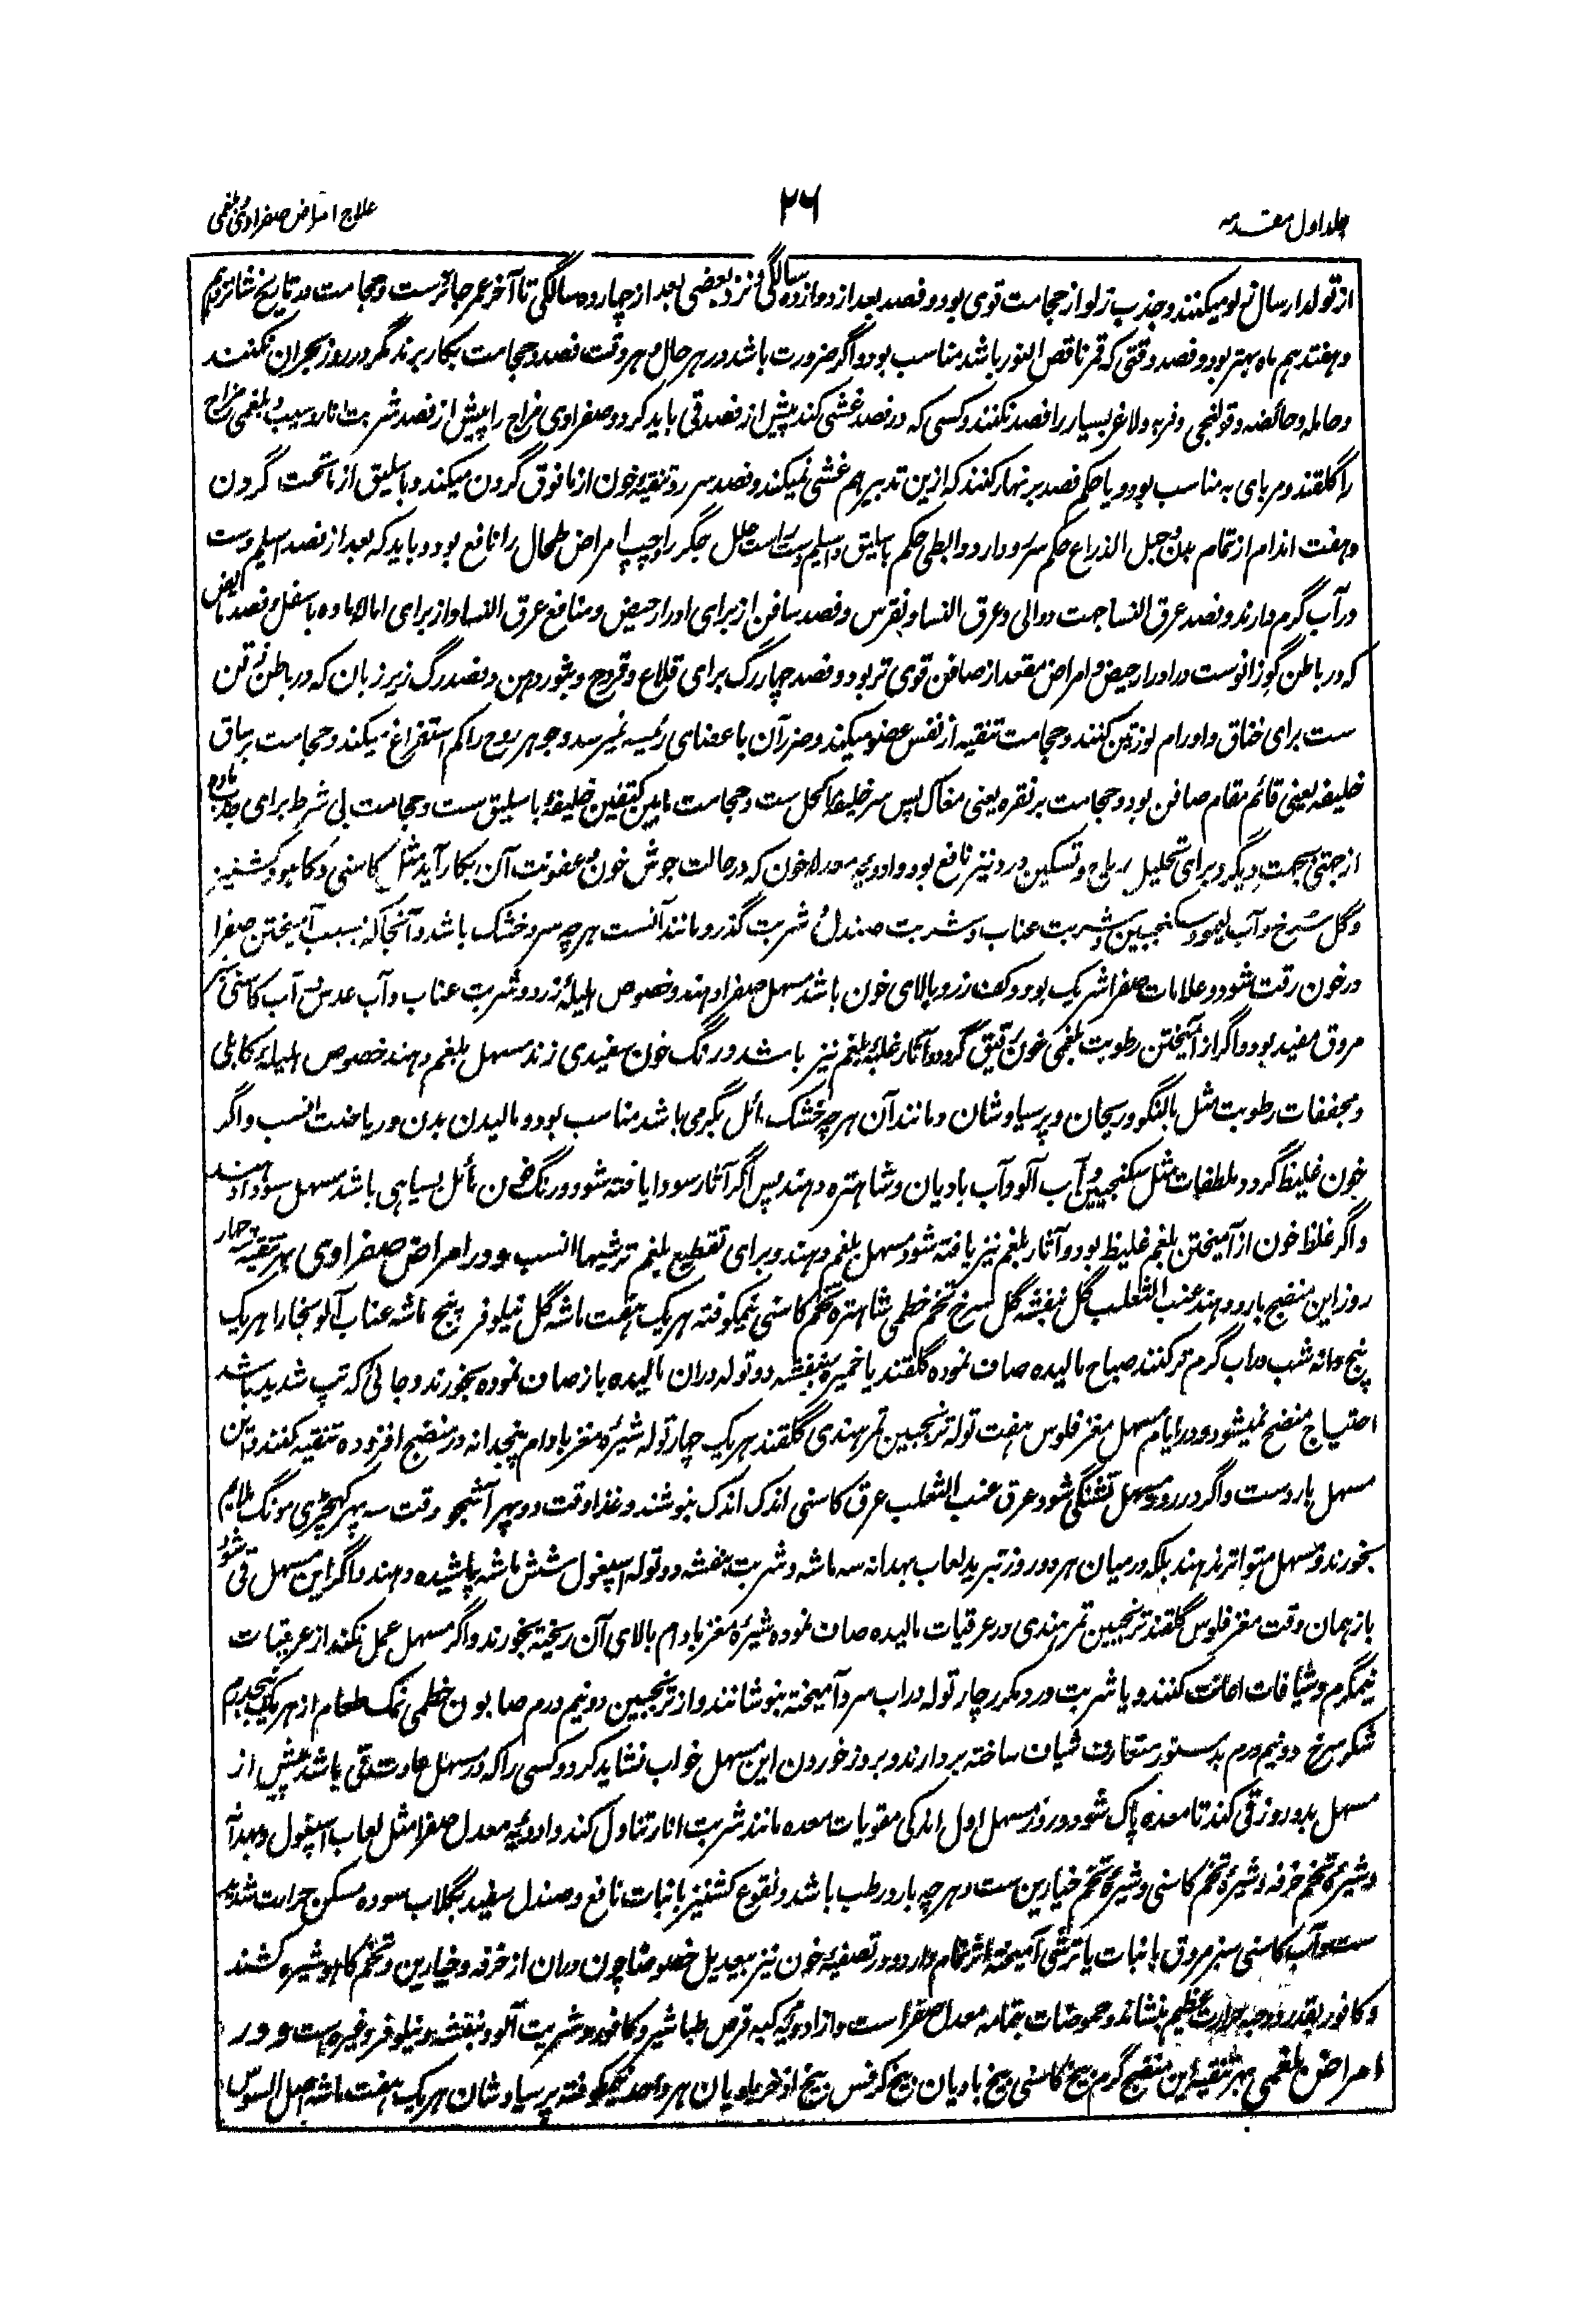 جلد اول مقدمه
۲۶
علاج امراض صفراوی و بلغمی
از تولد ارسال زلو میکنند و جذب زلو از حجامت قوی بود و فصد بعد از دوازده سالگی و نزد بعضی بعد از چهارده سالگی تا آخر عمر جائزست و حجامت در تاریخ شانزدهم
و هفتدهم ماه بهتر بود و فصد وقتی که قمر ناقص النور باشد مناسب بود و اگر ضرورت باشد در هر حال و هر وقت فصد و حجامت بکار برند مگر در روز بحران نکنند
و حامله و حائضه و قولنجی و فربه و لاغر بسیار را فصد نکنند و کسی که در فصد غشی کند پیش از فصد قی باید کرد و صفراوی مزاج را پیش از فصد شربت انار و سیب و بلغمی مزاج
را گلقند و مربای به مناسب بود و یا حکم فصد بر نهار کنند که ازین تدبیر هم غشی نمیکند و فصد سررو تنقیهٔ خون از ما فوق گردن میکند و باسلیق از ما تحت گردن
و هفت اندام از تمام بدن و حبل الذراع حکم سررو دارد و ابطی حکم باسلیق و اسیلم دست راست علل جگر را و چپ امراض طحال را نافع بود و باید که بعد از فصد اسیلم دست
در آب گرم دارند و فصد عرق النسا جهت دوالی و عرق النسا و نقرس و فصد صافن از برای ادرار حیض و منافع عرق النسا و از برای امالهٔ ماده باسفل و فصد مابض
که در باطن گوزانوست در ادرار حیض و امراض مقعد از صافن قوی تر بود و فصد چهار رگ برای قلاع و قروح و بثور دهن و فصد رگ زیر زبان که در باطن ذقن
ست برای خناق و اورام لوزتین کنند و حجامت تنقیه از نفس عضو میکند و ضرر آن با عضای رئیسه نمیرسد و جوهر روح را کم استفراغ میکند و حجامت بر ساق
خلیفه یعنی قائم مقام صافن بود و حجامت بر نقره یعنی مغاک پس سر خلیفهٔ اکحل ست و حجامت مابین کتفین خلیفهٔ باسلیق ست و حجامت بی شرط برای جذب ماده
از جهتی بجهت دیگر و برای تحلیل ریاح و تسکین درد نیز نافع بود و ادویهٔ معدلهٔ خون که در حالت جوش خون و عفونت آن بکار آید مثل کاسنی و کاهو و کشنیز
و گل سرخ و آب لیمو و سکنجبین و شربت عناب و شربت صندل و شربت گذر و مانند آنست هر چه سرد و خشک باشد و آنجا که بسبب آمیختن صفرا
در خون رقت شود و علامات صفرا شریک بود و کف زرد بالای خون باشد مسهل صفرا دهند و خصوص هلیلهٔ زرد و شربت عناب و آب عدس و آب کاسنی
مروق مفید بود و اگر از آمیختن رطوبت بلغمی خون رقیق گردد و آثار غلبهٔ بلغم نیز باشد و رنگ خون بسفیدی زند مسهل بلغم دهند خصوص هلیلهٔ کابلی
و مجففات رطوبت مثل بالنگو و ریحان و پرسیاوشان و مانند آن هر چه خشک مائل بگرمی باشد مناسب بود و مالیدن بدن و ریاضت انسب و اگر
خون غلیظ گردد ملطفات مثل سکنجبین و آب آلو و آب بادیان و شاهتره دهند پس اگر آثار سودا یافته شود و رنگ خون مائل بسیاهی باشد مسهل سودا دهند
و اگر غلظ خون از آمیختن بلغم غلیظ بود و آثار بلغم نیز یافته شود مسهل بلغم دهند و برای تقطیع بلغم ترشیها انسب و در امراض صفراوی بهر تنقیه سه چهار
روز این منضج بارد دهند عنب الثعلب گل بنفشه گل سرخ تخم خطمی شاهتره تخم کاسنی نیمکوفته هر یک هفت ماشه گل نیلوفر پنج ماشه عناب آلو بخارا هر یک
پنج دانه شب در آب گرم تر کنند صباح مالیده صاف نموده گلقند یا خمیره بنفشه دو توله دران مالیده باز صاف نموده بخورند و جائی که تپ شدید باشد
احتیاج منضج نمیشود و در ایام مسهل مغز فلوس هفت توله ترنجبین تمر هندی گلقند هر یک چهار توله شیرهٔ مغز بادام پنجدانه در منضج افزوده تنقیه کنند و این
مسهل باردست و اگر در روز مسهل تشنگی شود عرق عنب الثعلب عرق کاسنی اندک اندک بنوشند و غذا وقت دو پهر آشجو وقت سه پهر کهچڑی مونگ ملایم
بخورند و مسهل متواتر ندهند بلکه درمیان هر دو روز تبرید لعاب بهدانه سه ماشه و شربت بنفشه دو توله اسپغول شش ماشه پاشیده دهند و اگر این مسهل قی شود
باز همان وقت مغز فلوس گلقند ترنجبین تمر هندی در عرقیات مالیده صاف نموده شیرهٔ مغز بادام بالای آن ریخته بخورند و اگر مسهل عمل نکند از عرقیات
نیمگرم و شیافات اعانت کنند و یا شربت ورد مکرر چار توله در آب سرد آمیخته بنوشانند و از ترنجبین دو نیم درم صابون خطمی نمک طعام از هر یک پنجدرم
شکر سرخ دو نیم درم بدستور متعارف شیاف ساخته بردارند و بروز خوردن این مسهل خواب نشاید کرد و کسی را که در مسهل عادت قی باشد پیش از
مسهل بدو روز قی کند تا معده پاک شود و روز مسهل اول اندکی مقویات معده مانند شربت انار تناول کند و ادویهٔ معدل صفرا مثل لعاب اسپغول و بهدانه
و شیرهٔ تخم خرفه و شیرهٔ تخم کاسنی و شیرهٔ تخم خیارین ست و هر چه بارد رطب باشد و نقوع کشنیز با نبات نافع و صندل سفید بگلاب سوده مسکن حرارت شدید
ست و آب کاسنی سبز مروق با نبات یا ترشی آمیخته اثر تمام دارد و در تصفیهٔ خون نیز بیعدیل خصوصا چون دران از خرفه و خیارین و تخم کاهو شیره کشند
و کافور بقدر دو حبه حرارت عظیم بنشاند و حموضات بتمامه معدل صفراست و از ادویهٔ مرکبه قرص طباشیر و کافور و شربت آلو و بنفشه و نیلوفر و غیره ست و در
امراض بلغمی بهر تنقیه این منضج گرم بیخ کاسنی بیخ بادیان بیخ کرفس بیخ اذخر بادیان هر واحد نیمکوفته پرسیاوشان هر یک هفت ماشه اصل السوس